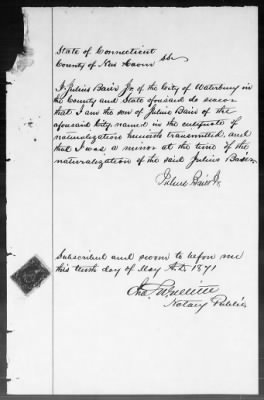 State of Connecticut
County of New Haven ss
I Julius Bair Jr of the City of Waterbury in
the County and State aforesaid do swear
that I am the son of Julius Bair of the
aforesaid City named in the certificate of
naturalization herewith transmitted, and
that I was a minor at the time of the
naturalization of the said Julius Bair.
Julius Bair Jr.
Subscribed and sworn to before me
this tenth day of May A.D. 1871
Notary Public